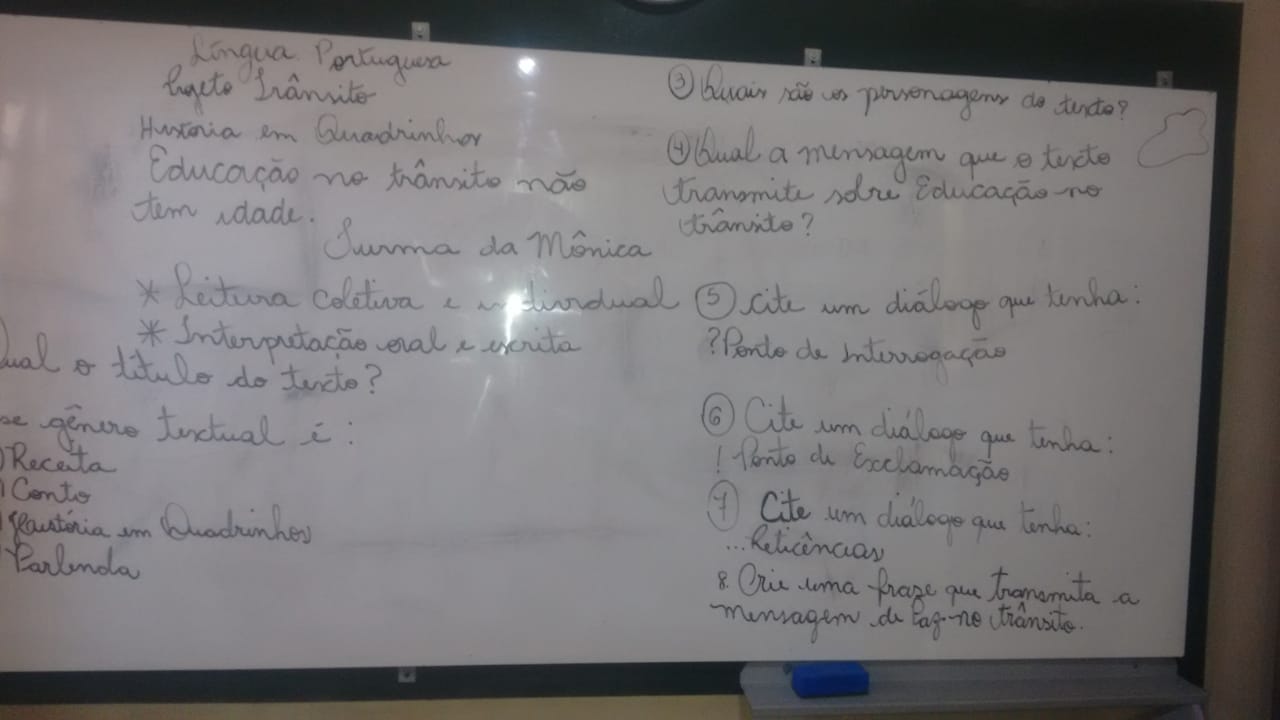 Língua Portuguesa
Projeto Trânsito
História em Quadrinhos
Educação no trânsito não
tem idade.
Turma da Mônica
* Leitura coletiva e individual
* Interpretação oral e escrita
ual o título do texto?
se gênero textual é:
) Receita
) Conto
) História em Quadrinhos
) Parlenda
③ Quais são os personagens do texto?
④ Qual a mensagem que o texto
transmite sobre Educação no
trânsito?
⑤ Cite um diálogo que tenha:
? Ponto de Interrogação
⑥ Cite um diálogo que tenha:
! Ponto de Exclamação
⑦ Cite um diálogo que tenha:
... Reticências
8. Crie uma fraze que transmita a
mensagem de Paz no trânsito.